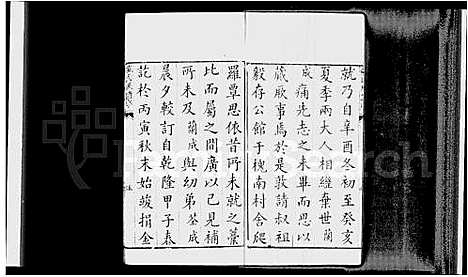 就乃自辛酉冬初至癸亥
夏季兩大人相繼棄世蘭
成痛先志之未畢而思以
蕆厥事焉於是敦請叔祖
毅存公館于槐南村舍爬
羅覃思依昔所未就之藁
比而屬之間廣以己見補
所未及蘭成與幼弟荃成
晨夕較訂自乾隆甲子春
訖於丙寅秋末始竣捐金